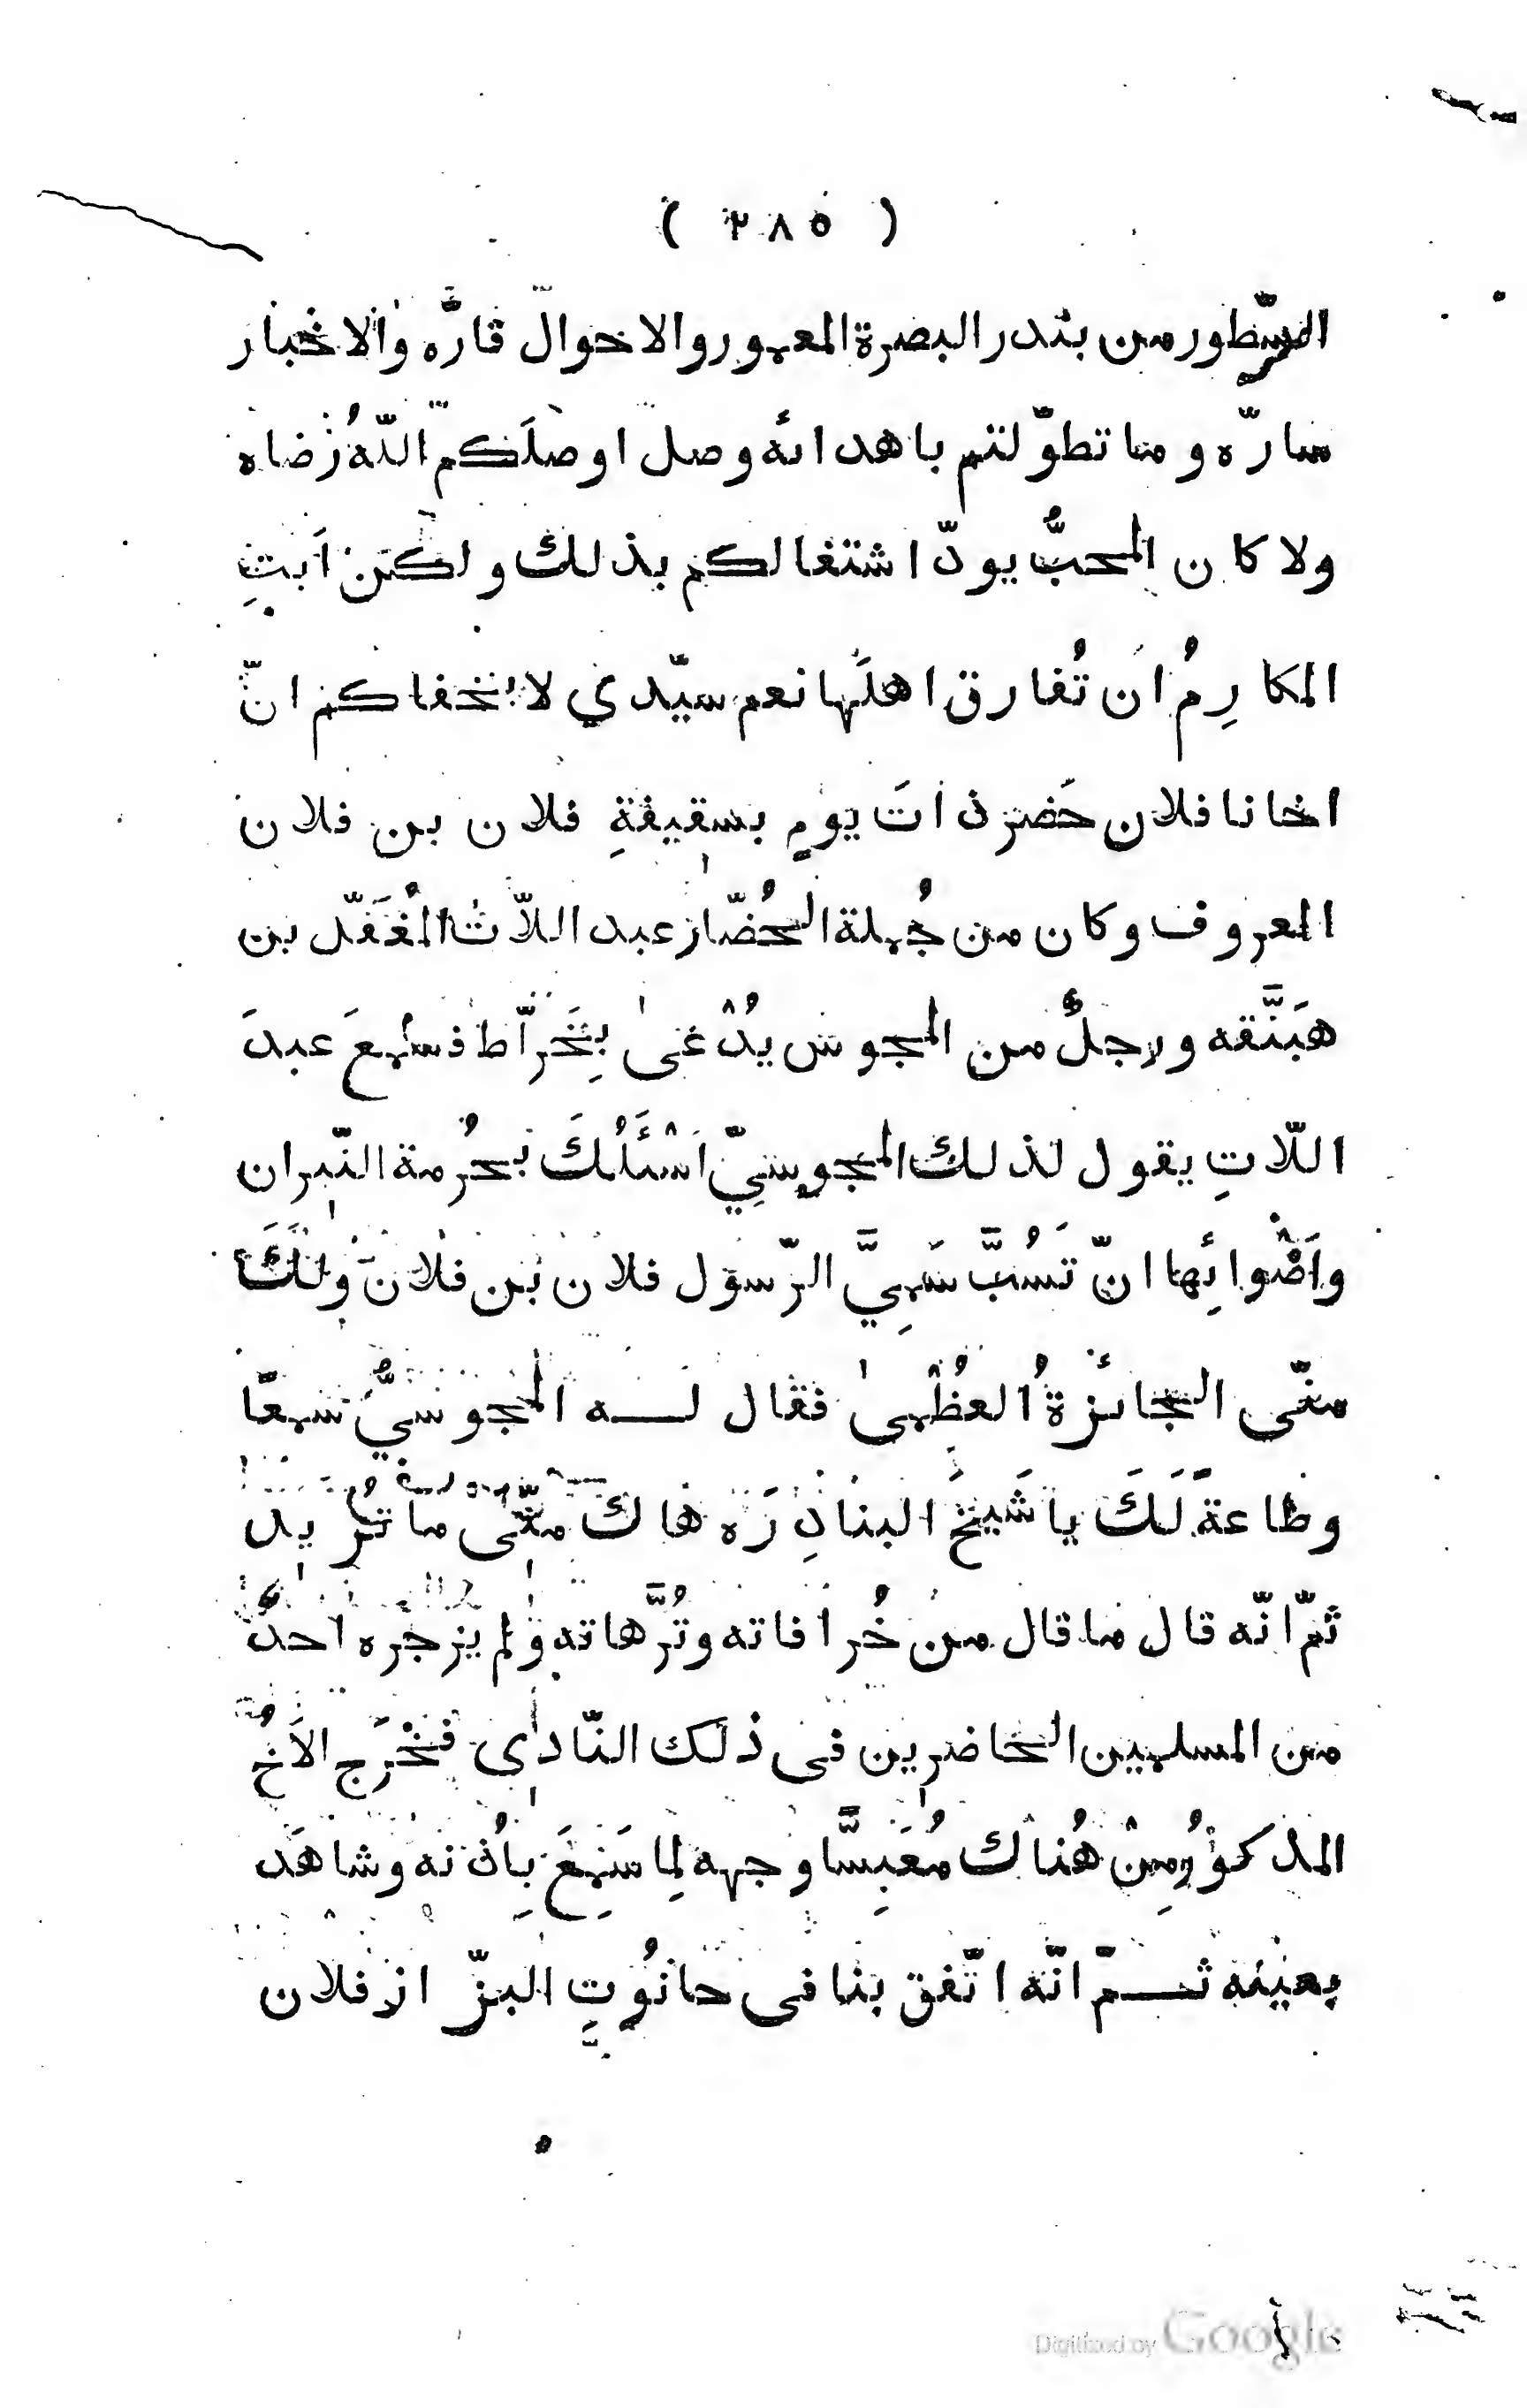 ( ٢٨٥ )
السّطور من بندر البصرة المعمور والاحوال قارّه والاخبار
سارّه وما تطوّلتم باهدائه وصل اوصلَكم اللّهُ رضاه
ولا كان المحبُّ يودّ اشتغالكم بذلك ولكن اَبتِ
المكارِمُ ان تُفارق اهلَها نعم سيّدي لا يخفاكم انّ
اخانا فلان حَضر ذاتَ يومٍ بسقيفةِ فلان بن فلان
المعروف وكان من جُملة الحُضّار عبد اللّات المُغَفّل بن
هَبَنَّقه ورجلٌ من المجوس يُدْعىٰ بِخَرّاط فسمِعَ عبدَ
اللّاتِ يقول لذلك المجوسِيّ اَسْئَلُكَ بحُرمة النّيران
واَضْوائِها انّ تَسُبَّ سَمِيَّ الرّسول فلان بن فلان ولَكَ
منّى الجائزةُ العظْمىٰ فقال لـه المجوسيُّ سمعًا
وطاعةً لَكَ يا شَيخَ البنادِرَه هاك منّى ما تُريد
ثمّ انّه قال ما قال من خُرافاته وتُرَّهاته ولم يزجره احدٌ
من المسلمين الحاضرين فى ذلك النّادى فخْرَج الاَخُ
المذكوْرُ مِنْ هُناك مُعَبِسَّا وجهه لِما سَمِعَ بِاُذنه وشاهَد
بعينه ثـمّ انّه اتّفق بنا فى حانُوتِ البزّاز فلان
Digitized by Google